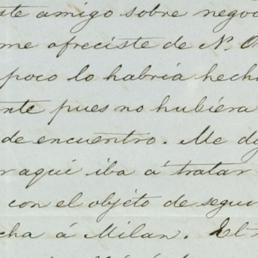 este amigo sobre negoc
me ofreciste de N. O
poco lo habria hech
nte pues no hubiera
de encuentro. Me d
r aqui iba á tratar
con el objeto de segui
cha á Milan. El